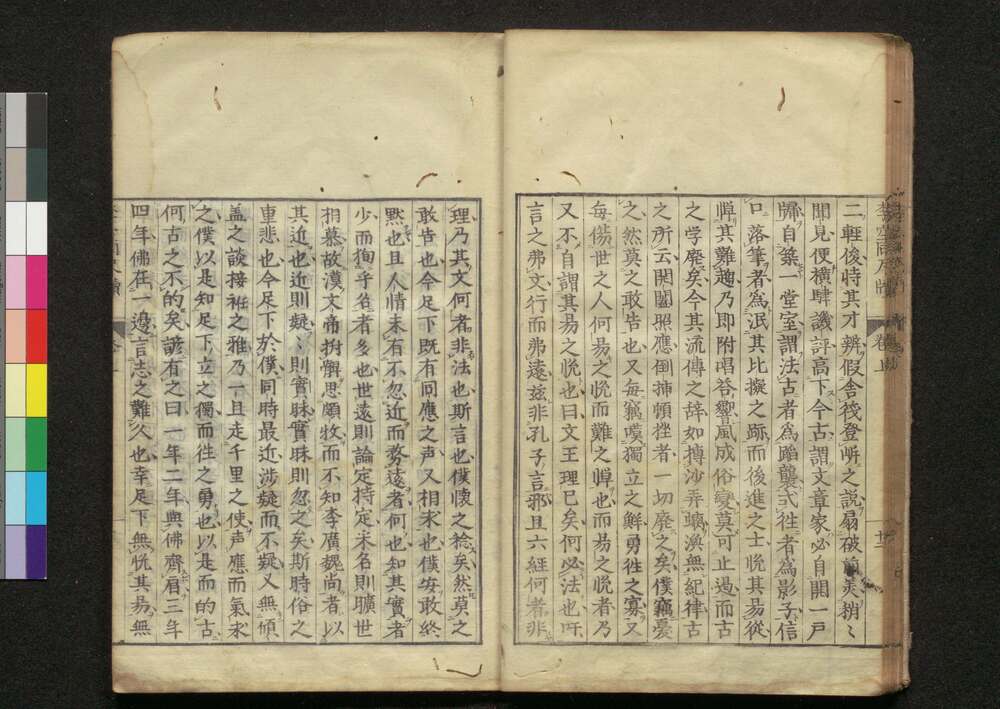 二輕俊恃其才辨假舍筏登岍之説扇破前美稍〻
聞見便橫肆譏評高下今古謂文章家必自開一戸
牖自築一堂室謂法古者為蹈襲式徃者為影子信
口落筆者為泯其比擬之跡而後進之士悅其易從
憚其難趨乃即附唱答響風成俗變莫可止遏而古
之学廢矣今其流傳之辞如摶沙弄螭渙無紀律古
之所云開闔照應倒揷頓挫者一切廢之矣僕竊憂
之然莫之敢告也又每竊嘆獨立之鮮勇徃之寡又
每傷世之人何易之悅而難之憚也而易之悅者乃
又不自謂其易之悅也曰文王理已矣何必法也吁
言之弗文行而弗遠兹非孔子言邪且六經何者非
理乃其文何者非法也斯言也僕懷之稔矣然莫之
敢告也今足下既有同應之声又相求也僕安敢終
黙也且人情未有不忽近而務遠者何也知其實者
少而狥乎名者多也世遠則論定持定求名則曠世
相慕故漢文帝拊髀思頗牧而不知李廣魏尚者以
其近也近則疑〻則實昧實昧則忽之矣斯時俗之
重悲也今足下於僕同時最近渉疑而不疑又無傾
盖之談接袵之雅乃一旦走千里之使声應而氣求
之僕以是知足下立之獨而徃之勇也以是而的古
何古之不的矣諺有之曰一年二年與佛齊肩三年
四年佛在一邉言志之難久也幸足下無恱其易無